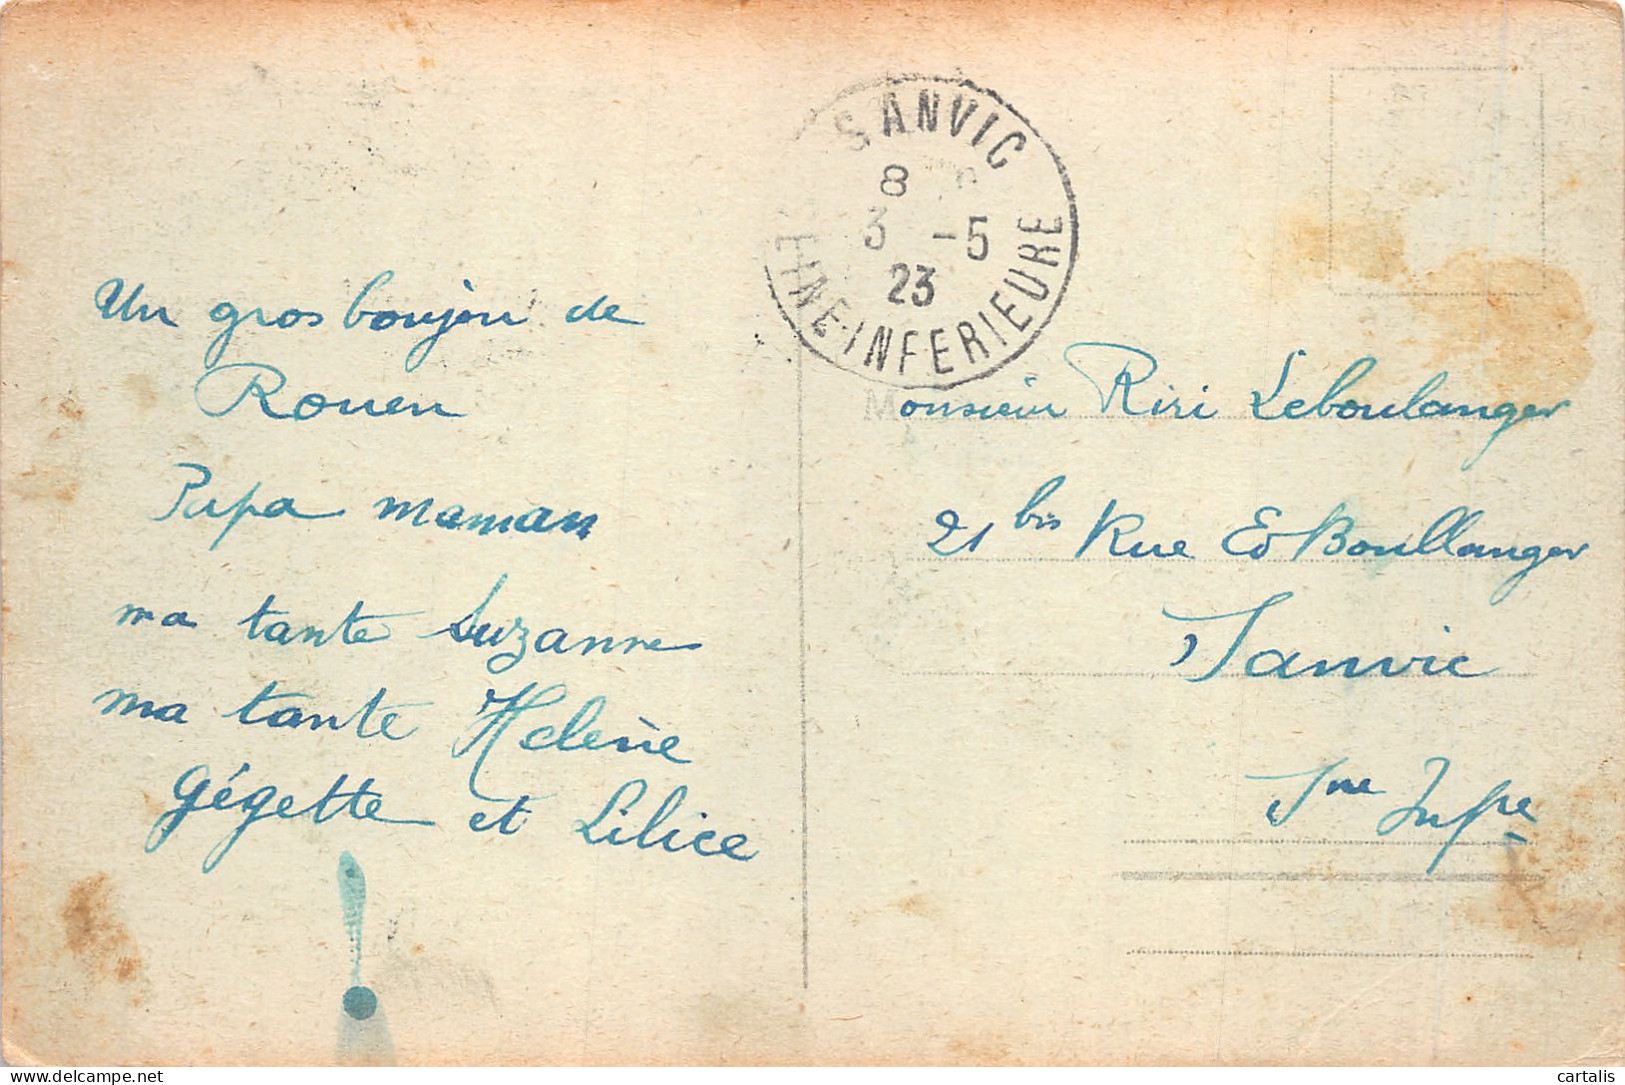 SANVIC
8
3 -5
23
EINE-INFERIEURE
Un gros boujou de
Rouen
Papa maman
ma tante Suzanne
ma tante Helène
Gégette et Lilice
Monsieur Riri Leboulanger
21 bis Rue Ed Boullanger
Sanvic
Sne Infre
delcampe.net
cartalis